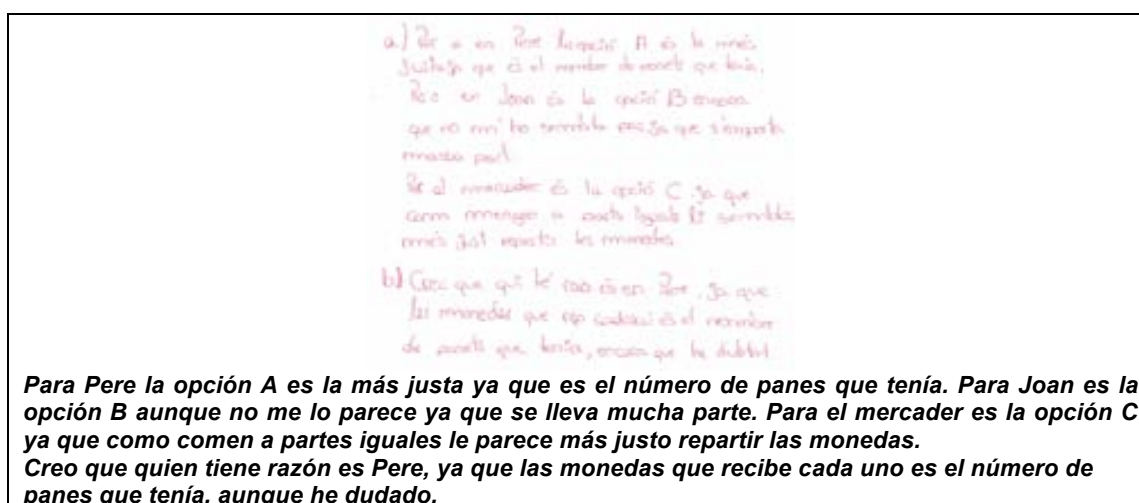 a) Per a en Pere la opció A és la més
justa ja que és el nombre de panets que tenia.
Per a en Joan és la opció B encara
que no m'ho sembla pas ja que s'emporta
massa part.
Per al mercader és la opció C ja que
com mengen a parts iguals li sembla
més just repartir les monedes.
b) Crec que qui té raó és en Pere, ja que
les monedes que rep cadascú és el nombre
de panets que tenia, encara que he dubtat.
Para Pere la opción A es la más justa ya que es el número de panes que tenía. Para Joan es la
opción B aunque no me lo parece ya que se lleva mucha parte. Para el mercader es la opción C
ya que como comen a partes iguales le parece más justo repartir las monedas.
Creo que quien tiene razón es Pere, ya que las monedas que recibe cada uno es el número de
panes que tenía, aunque he dudado.